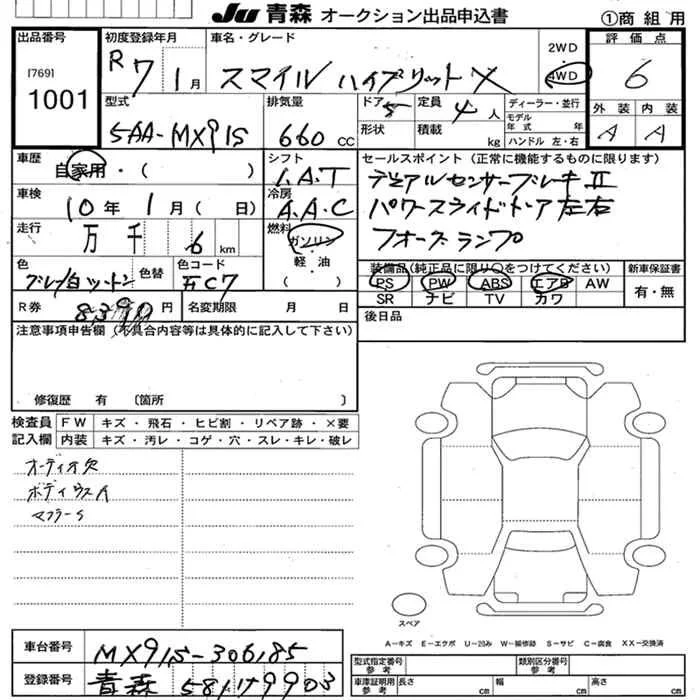 JU 青森 オークション出品申込書 ①商組用
出品番号
[769]
1001
初度登録年月
R 7 1月
車名・グレード
スマイル ハイブリット X
2WD
4WD
評価点
6
外装 内装
A A
型式
5AA-MX91S
排気量
660 cc
ドア 5
形状
定員 4人
積載 kg
ディーラー・並行
モデル年式 年
ハンドル 左・右
車歴
自家用・( )
シフト
I.A.T
セールスポイント(正常に機能するものに限ります)
デュアルセンサーブレーキII
パワースライドドア左右
フォグランプ
車検
10年 1月( 日)
冷房
A.A.C
走行
万 千 6 km
燃料
ガソリン
軽油
( )
色
色替
色コード
CC7
装備品(純正品に限り○をつけてください)
PS PW ABS エアB AW
SR ナビ TV カワ
新車保証書
有・無
R券
円
名変期限 月 日
後日品
注意事項申告欄(不具合内容等は具体的に記入して下さい)
修復歴 有 〔箇所 〕
検査員
記入欄
FW キズ・飛石・ヒビ割・リペア跡・×要
内装 キズ・汚レ・コゲ・穴・スレ・キレ・破レ
オーディオ欠
ボディウスA
マフラーS
スペア
A-キズ E-エクボ U-凹み W-補修跡 S-サビ C-腐食 XX-交換済
車台番号
MX91S-306185
登録番号
青森 581 た 9903
型式指定番号
参考
類別区分番号
参考
車庫証明用
参考
長さ cm
幅 cm
高さ cm